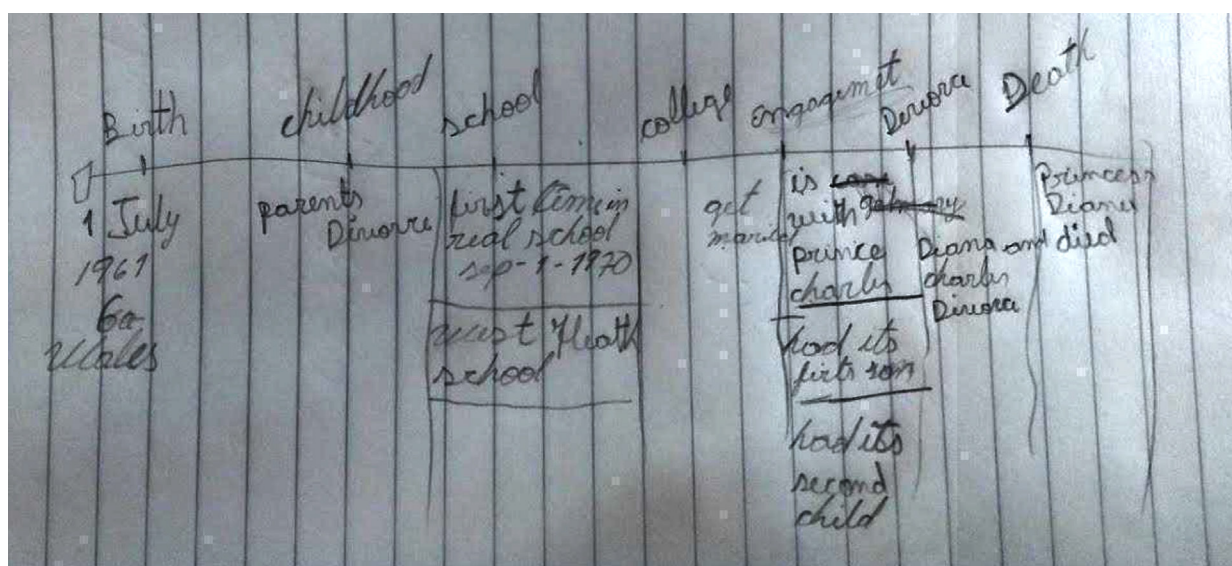 Birth childhood school college engagemet Divorce Death
1 July
1961
Wales
parents
Divorce
first time in
real school
sep-1-1970
west Heath
school
get
maried
is
with
prince
charles
had its
firts son
had its
second
child
Diana and
charles
Divorce
Princess
Diana
died